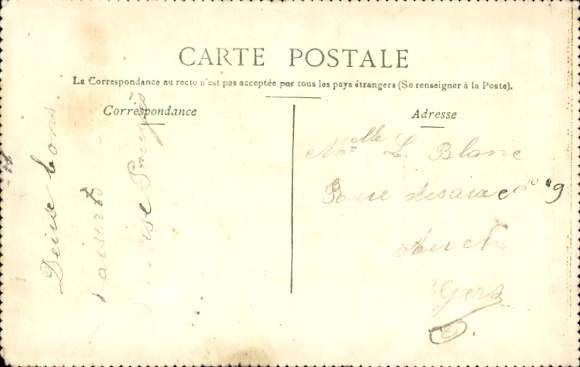 CARTE POSTALE
La Correspondance au recto n'est pas acceptée par tous les pays étrangers (Se renseigner à la Poste).
Correspondance
Adresse
bons
Mlle L. Blanc
Rue 9
Auch
Gers